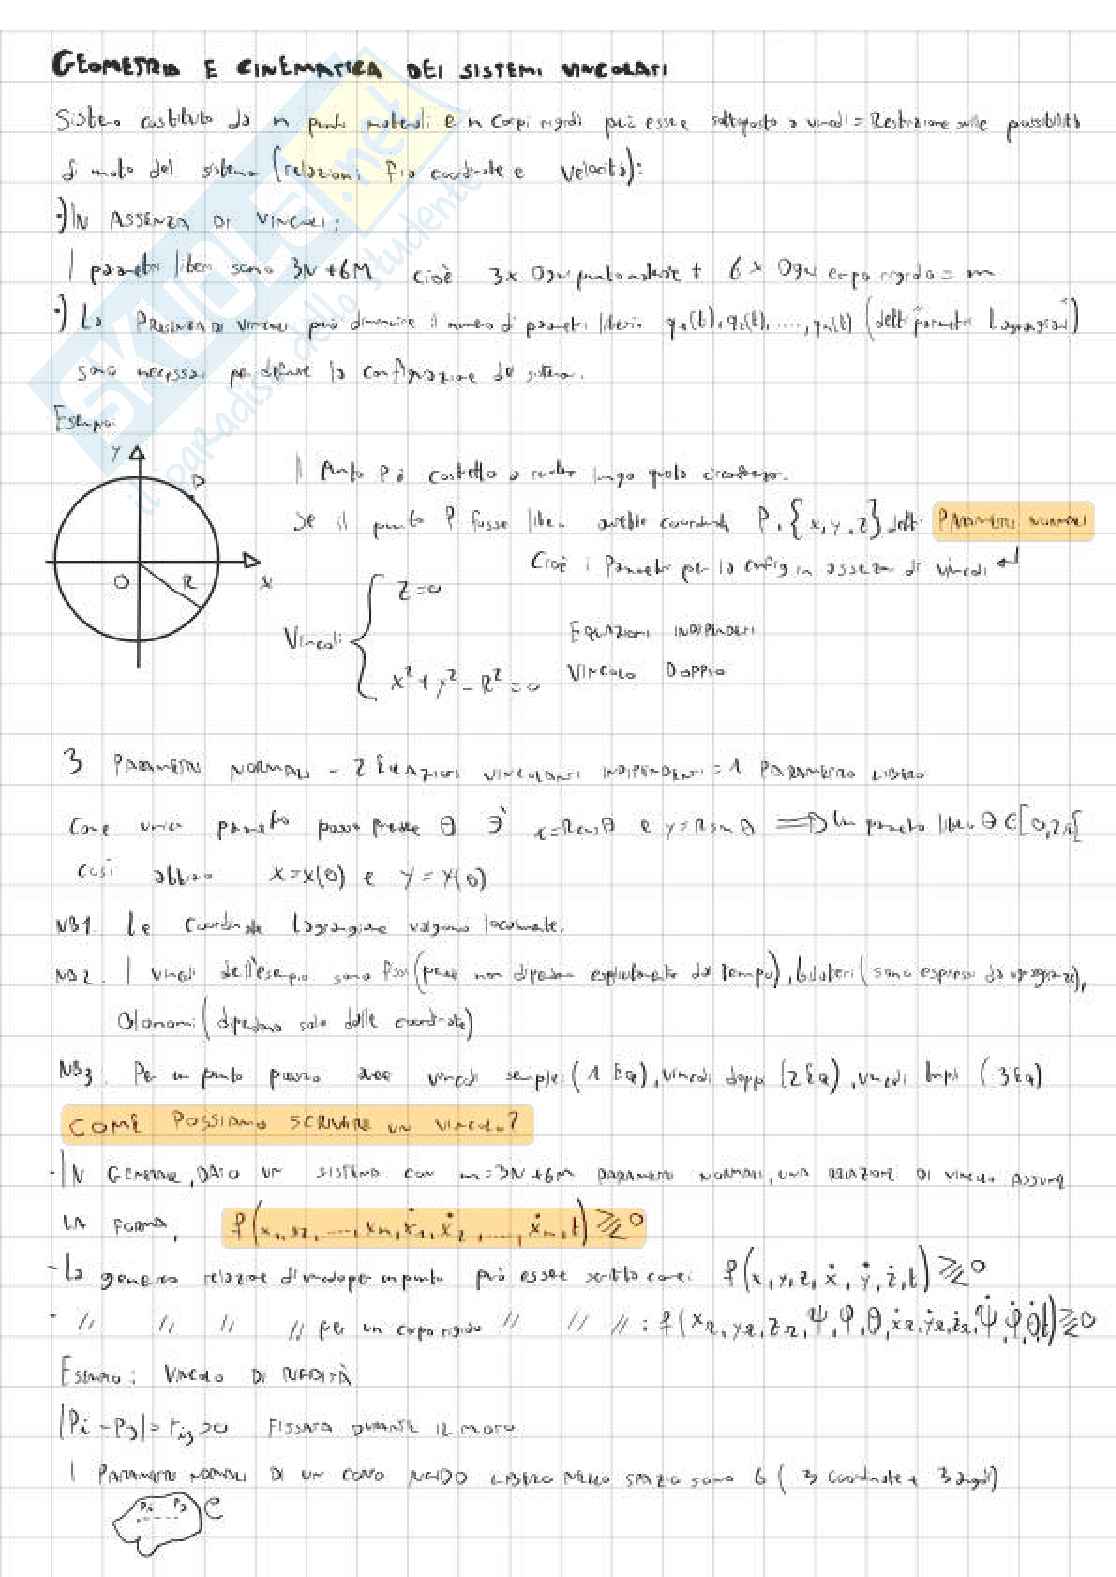 GEOMETRIA E CINEMATICA DEI SISTEMI VINCOLATI
Sistema costituito da n punti materiali e n corpi rigidi può essere sottoposto a vincoli = Restrizione sulle possibilità
di moto del sistema (relazioni fra coordinate e velocità):
·) IN ASSENZA DI VINCOLI:
I parametri liberi sono 3N+6M cioè 3x Ogni punto materiale + 6x Ogni corpo rigido = m
·) La PRESENZA DI VINCOLI può diminuire il numero di parametri liberi q₁(t), q₂(t), ...., qₙ(t) (detti parametri Lagrangiani)
sono necessari per definire la configurazione del sistema.
Esempio:
Y
P
O
R
X
Il Punto P è costretto a lungo questa circonferenza.
Se il punto P fosse libero avrebbe coordinate P.{x,y,z} detti PARAMETRI NORMALI
Cioè i Parametri per la config in assenza di vincoli ↲
Vincoli { Z=0
EQUAZIONI INDIPENDENTI
x²+y²-R²=0 VINCOLO DOPPIO
3 PARAMETRI NORMALI - 2 EQUAZIONI VINCOLANTI INDIPENDENTI = 1 PARAMETRO LIBERO
Come unico parametro posso prendere θ ∋' x=Rcosθ e y=Rsinθ ⟹ Un parametro libero θ ∈ [0,2π[
Così abbiamo x=x(θ) e y=y(θ)
NB1. Le coordinate Lagrangiane valgono localmente.
NB2. I vincoli dell'esempio sono fissi (perché non dipendono esplicitamente dal Tempo), bilateri (sono espressi da uguaglianze),
Olonomi (dipendono solo dalle coordinate)
NB3. Per un punto posso avere vincoli semplici (1 Eq), vincoli doppi (2 Eq), vincoli tripli (3 Eq)
COME POSSIAMO SCRIVERE UN VINCOLO?
- IN GENERALE, DATO UN SISTEMA CON m=3N+6M PARAMETRI NORMALI, UNA RELAZIONE DI VINCOLO ASSUME
LA FORMA, f(x₁, x₂, ...., xₘ, ẋ₁, ẋ₂, ...., ẋₘ, t) ⩾ 0
- La generica relazione di vincolo per un punto può essere scritta come: f(x,y,z,ẋ,ẏ,ż,t) ⩾ 0
- // // // // per un corpo rigido // // // : f(x_R, y_R, z_R, Ψ, φ, θ, ẋ_R, ẏ_R, ż_R, Ψ̇, φ̇, θ̇, t) ⩾ 0
ESEMPIO: VINCOLO DI RIGIDITÀ
|Pi - Pj| = rij > 0 FISSATA DURANTE IL MOTO
I PARAMETRI NORMALI DI UN CORPO RIGIDO LIBERO NELLO SPAZIO sono 6 (3 coordinate + 3 angoli)
Pi Pj C
SKUOLA.net
il paradiso dello studente